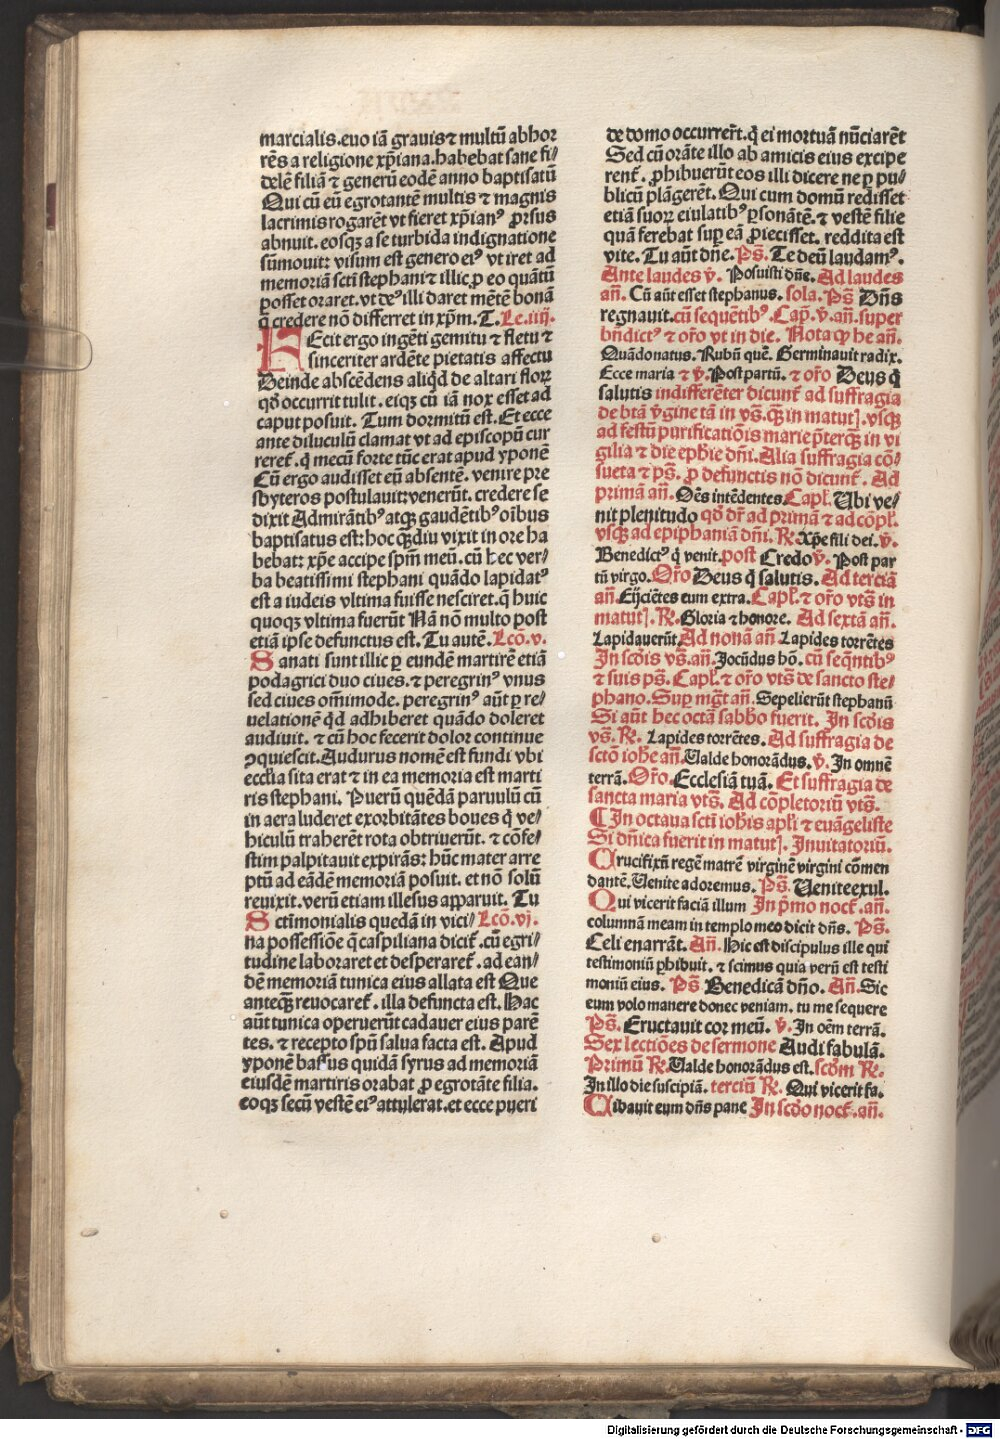 marcialis.euo iā grauis ⁊ multū abhor
rēs a religione xp̄iana.habebat sane fi⸗
delē filiā ⁊ generū eodē anno baptisatū
Qui cū eū egrotantē multis ⁊ magnis
lacrimis rogarēt vt fieret xp̄ianꝰ ꝓrsus
abnuit.eosqꝫ a se turbida indignatione
sūmouit: visum est genero eiꝰ vt iret ad
memoriā scti stephani ⁊ illic ꝓ eo quātū
posset oraret.vt deꝰ illi daret mētē bonā
q̄ credere nō differret in xp̄m.T.Lc.iiij.
Fecit ergo ingēti gemitu ⁊ fletu ⁊
sinceriter ardēte pietatis affectu
Deinde abscēdens aliqd̄ de altari floꝝ
qd̄ occurrit tulit.eiqꝫ cū iā nox esset ad
caput posuit. Tum dormitū est.Et ecce
ante diluculū clamat vt ad episcopū cur
reret̄.q̄ mecū forte tūc erat apud yponē
Cū ergo audisset eū absentē.venire pre
sbyteros postulauit:venerūt.credere se
dixit Admirātibꝰ atqꝫ gaudētibꝰ oībus
baptisatus est:hoc qꝫdiu vixit in ore ha
bebat: xp̄e accipe spm̄ meū.cū hec ver⸗
ba beatissimi stephani quādo lapidatꝰ
est a iudeis vltima fuisse nesciret.q̄ huic
quoqꝫ vltima fuerūt Nā nō multo post
etiā ipse defunctus est.Tu autē.Lcō.v.
Sanati sunt illic ꝑ eundē martirē etiā
podagrici duo ciues.⁊ peregrinꝰ vnus
sed ciues om̄imode.peregrinꝰ aūt ꝑ re⸗
uelationē qd̄ adhiberet quādo doleret
audiuit.⁊ cū hoc fecerit dolor continue
ꝯquiescit.Audurus nomē est fundi vbi
ecclia sita erat ⁊ in ea memoria est marti
ris stephani. Puerū quēdā paruulū cū
in aera luderet exorbitātes boues q̄ ve⸗
hiculū traherēt rota obtriuerūt.⁊ cōfe⸗
stim palpitauit expirās: hūc mater arre
ptū ad eādē memoriā posuit.et nō solū
reuixit.verū etiam illesus apparuit. Tu
Sctimonialis quedā in vici⸗ Lcō.vj.
na possessiōe q̄ caspiliana dicit̄.cū egri⸗
tudine laboraret et desperaret̄.ad ean⸗
dē memoriā tunica eius allata est Que
anteqꝫ reuocaret̄.illa defuncta est.Hac
aūt tunica operuerūt cadauer eius parē
tes.⁊ recepto spū salua facta est. Apud
yponē bassus quidā syrus ad memoriā
eiusdē martiris orabat ꝓ egrotāte filia.
eoqꝫ secū vestē eiꝰ attulerat.et ecce pueri
de domo occurrer̄t.q̄ ei mortuā nūciarēt
Sed cū orāte illo ab amicis eius excipe
rent̄.ꝓhibuerūt eos illi dicere ne ꝑ pu⸗
blicū plāgerēt. Qui cum domū redisset
etiā suoꝝ eiulatibꝰ ꝑsonātē.⁊ vestē filie
quā ferebat suꝑ eā ꝓiecisset.reddita est
vite.Tu aūt dn̄e.Ps̄. Te deū laudamꝰ.
Ante laudes v̄. Posuisti dn̄e. Ad laudes
an̄. Cū aūt esset stephanus. sola. Ps̄ Dn̄s
regnauit.cū sequētibꝰ. Cap̄.v̄.an̄.super
bn̄dictꝰ ⁊ or̄o vt in die. Nota ꝙ he an̄.
Quādo natus. Rubū quē. Germinauit radix.
Ecce maria ⁊ v̄. Post partū.⁊ or̄o Deus q̄
salutis indifferēter dicunt̄ ad suffragia
de btā v̄gine tā in vs̄.qꝫ in matutꝭ.vsqꝫ
ad festū purificatiōis marie p̄terqꝫ in vi
gilia ⁊ die eph̄ie dn̄i.Alia suffragia cō⸗
sueta ⁊ ps̄. ꝓ defunctis nō dicunt̄. Ad
primā an̄. Oēs intēdentes Capl̄. Ubi ve⸗
nit plenitudo qd̄ dr̄ ad primā ⁊ ad cōpl̄.
vsqꝫ ad epiphaniā dn̄i. ꝶ. Xp̄e fili dei. v̄.
Benedictꝰ q̄ venit.post Credo v̄. Post par
tū virgo. Or̄o Deus q̄ salutis. Ad terciā
an̄. Eijciētes eum extra. Capl̄.⁊ or̄o vts̄ in
matutꝭ. ꝶ. Gloria ⁊ honore. Ad sextā an̄.
Lapidauerūt Ad nonā an̄ Lapides torrētes
In scd̄is vs̄.an̄. Jocūdus hō. cū seqn̄tibꝰ
⁊ suis ps̄. Capl̄.⁊ or̄o vts̄ de sancto ste⸗
phano. Suꝑ mḡt an̄. Sepelierūt stephanū
Si aūt hec octā sabb̄o fuerit. In scd̄is
vs̄. ꝶ. Lapides torrētes. Ad suffragia de
sctō ioh̄e an̄. Ualde honorādus. v̄. In omnē
terrā. Or̄o. Ecclesiā tuā. Et suffragia de
sancta maria vts̄. Ad cōpletoriū vts̄.
¶ In octaua scti ioh̄is apl̄i ⁊ euāgeliste
Si dn̄ica fuerit in matutꝭ. Inuitatoriū.
Crucifixū regē matrē virginē virgini cōmen
dantē. Uenite adoremus. Ps̄. Uenite exul.
Qui vicerit faciā illum In p̄mo noct̄.an̄.
columnā meam in templo meo dicit dn̄s. Ps̄.
Celi enarrāt. An̄. Hic est discipulus ille qui
testimoniū ꝑhibuit.⁊ scimus quia verū est testi
moniū eius. Ps̄ Benedicā dn̄o. An̄. Sic
eum volo manere donec veniam.tu me sequere
Ps̄. Eructauit cor meū. v̄. In oēm terrā.
Sex lectiōes de sermone Audi fabulā.
Primū ꝶ. Ualde honorādus est. scd̄m ꝶ.
In illo die suscipiā. terciū ꝶ. Qui vicerit fa.
Cibauit eum dn̄s pane In scd̄o noct̄.an̄.
Digitalisierung gefördert durch die Deutsche Forschungsgemeinschaft - DFG